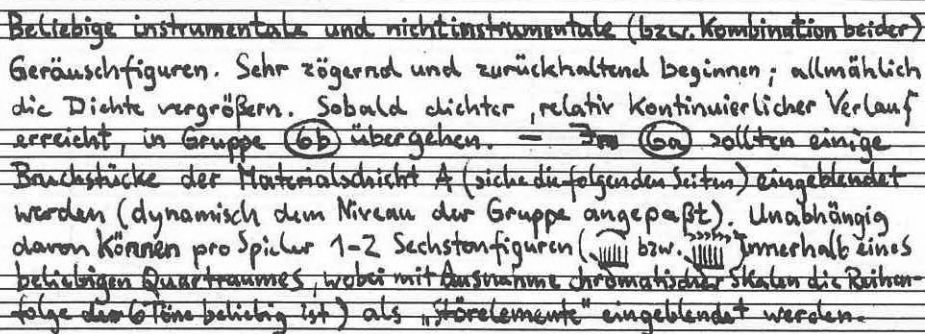 Beliebige instrumentale und nichtinstrumentale (bzw. Kombination beider)
Geräuschfiguren. Sehr zögernd und zurückhaltend beginnen; allmählich
die Dichte vergrößern. Sobald dichter, relativ kontinuierlicher Verlauf
erreicht, in Gruppe 6b übergehen. – In 6a sollten einige
Bruchstücke der Materialschicht A (siehe die folgenden Seiten) eingeblendet
werden (dynamisch dem Niveau der Gruppe angepaßt). Unabhängig
davon können pro Spieler 1-2 Sechstonfiguren ( bzw. ) innerhalb eines
beliebigen Quartraumes, wobei mit Ausnahme chromatischer Skalen die Reihen-
folge der 6 Töne beliebig ist) als „Störelemente“ eingeblendet werden.